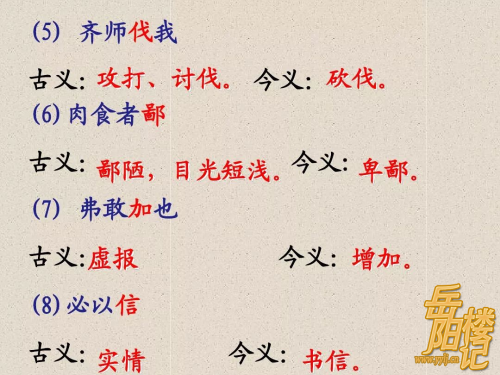 (5) 齐师伐我
古义: 攻打、讨伐。 今义: 砍伐。
(6)肉食者鄙
古义: 鄙陋，目光短浅。今义: 卑鄙。
(7) 弗敢加也
古义:虚报 今义: 增加。
(8)必以信
古义: 实情 今义: 书信。
岳阳楼记
www.yylj.cn